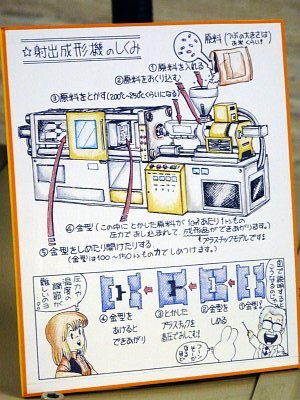 ☆射出成形機のしくみ
原料(つぶの大きさは
お米くらい!)
①原料を入れる
②原料をおくり込む
③原料をとかす(200℃~250℃くらいになる)
④金型(この中にとかした原料が1cm²あたり1トンもの
圧力でおし込まれて、成形品ができあがります。)
↑プラスチックモデルです!
⑤金型をしめたり開けたりする
(金型は100~150トンもの力でしめつけます。)
圧力や
温度の
調節が
難しいのョ
④金型を
あけると
できあがり
③とかした
プラスチックを
高圧でおしこむ!
②金型を
しめる
①金型!